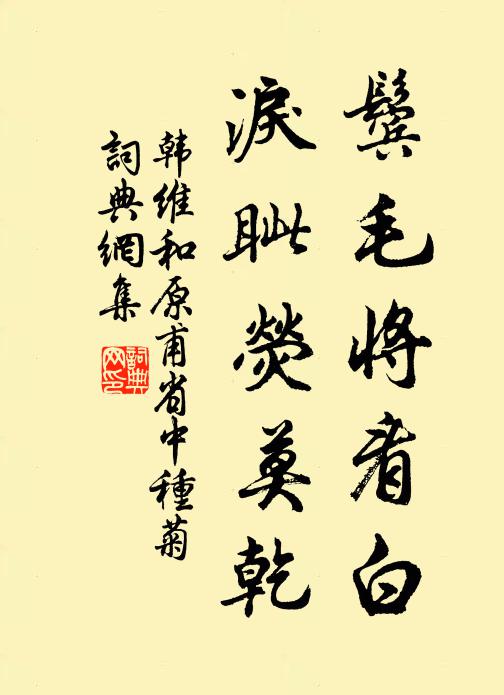 鬓毛将看白
淚眦熒莫乾
韩维和原甫省中種菊
詞典網集
詞典网印